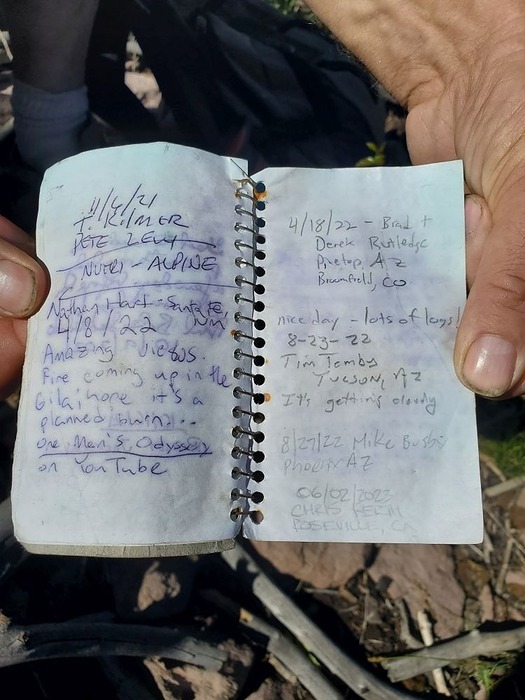 T. KILMER
PETE LEVY
NUTRI - ALPINE
Nathan Hart - Santa Fe,
4/8/22 NM
Amazing views.
Fire coming up in the
Gila, hope it's a
planned burn...
One Man's Odyssey
on YouTube
4/18/22 - Brad +
Derek Rutledge
Pinetop, AZ
Broomfield, CO
nice day - lots of logs!
8-23-22
Tim Tomby
Tucson, AZ
It's getting cloudy
8/27/22 Mike
Phoenix AZ
06/02/2023
CHRIS
ROSEVILLE, CA